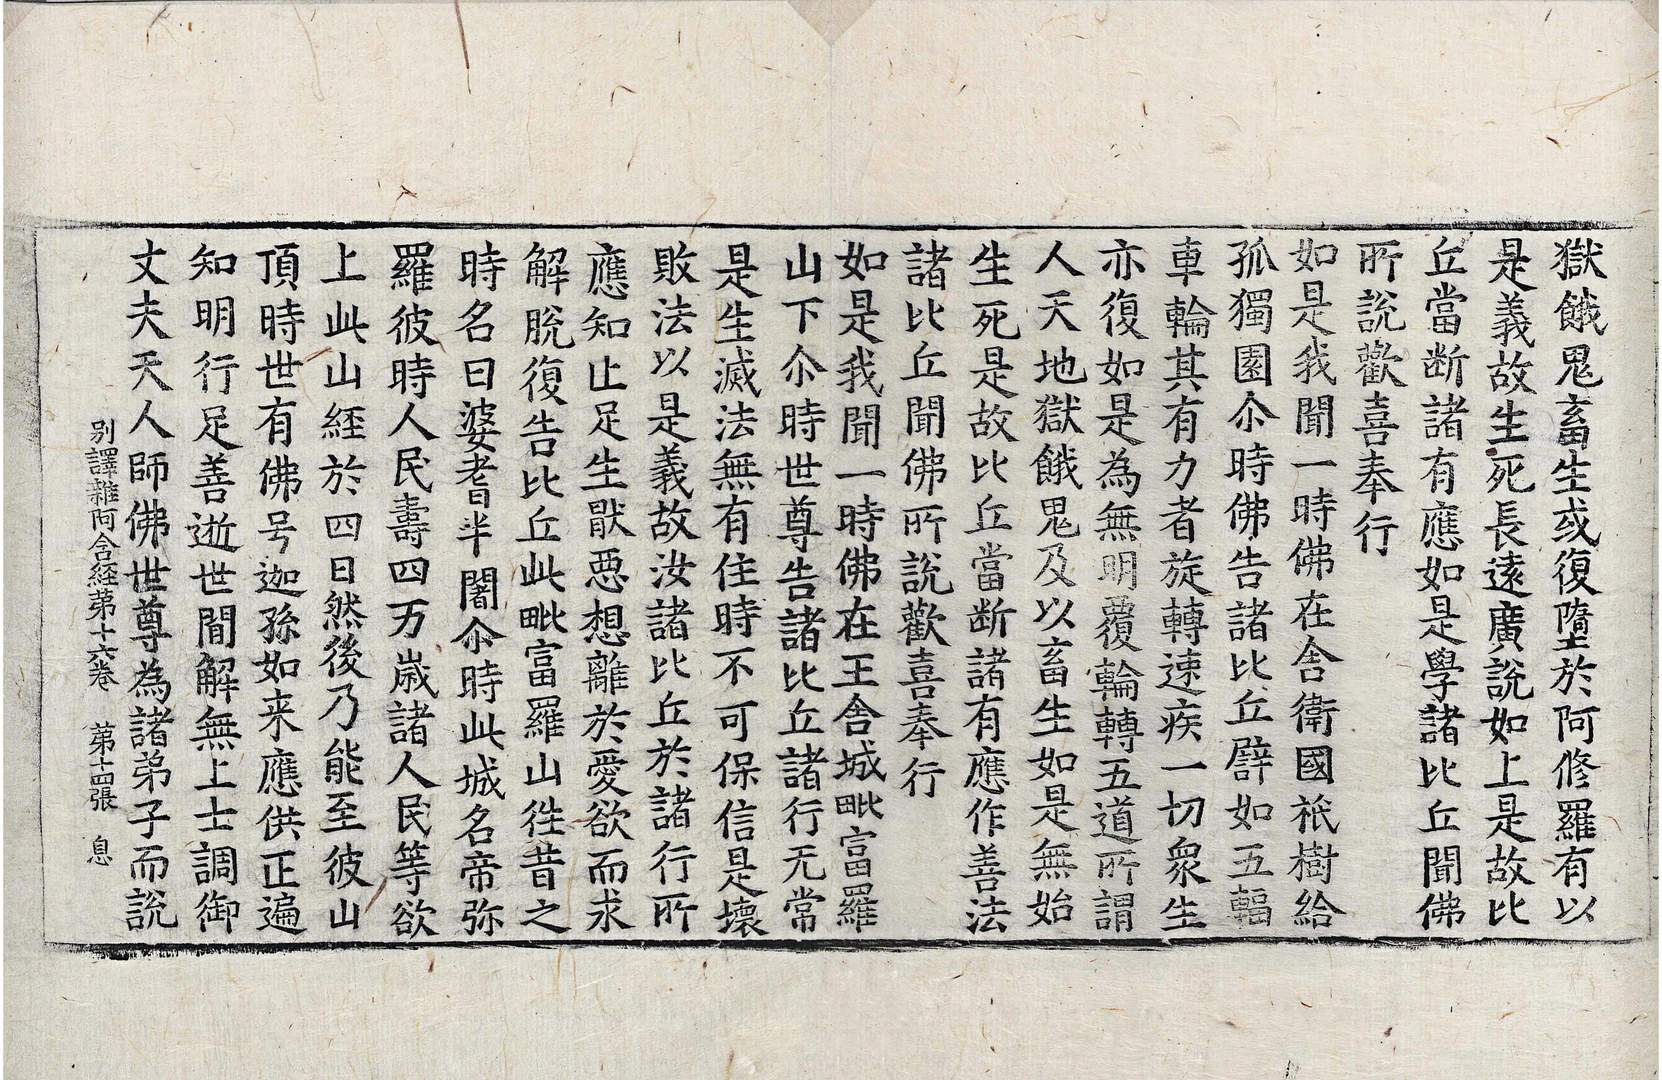 獄餓鬼畜生或復墮於阿修羅有以
是義故生死長遠廣說如上是故比
丘當断諸有應如是學諸比丘聞佛
所說歡喜奉行
如是我聞一時佛在舎衛國祇樹給
孤獨園尒時佛告諸比丘譬如五輻
車輪其有力者旋轉速疾一切衆生
亦復如是為無明覆輪轉五道所謂
人天地獄餓鬼及以畜生如是無始
生死是故比丘當断諸有應作善法
諸比丘聞佛所說歡喜奉行
如是我聞一時佛在王舎城毗富羅
山下尒時世尊告諸比丘諸行无常
是生滅法無有住時不可保信是壞
敗法以是義故汝諸比丘於諸行所
應知止足生猒惡想離於愛欲而求
解脫復告比丘此毗富羅山徃昔之
時名曰婆耆半闍尒時此城名帝弥
羅彼時人民壽四万歲諸人民等欲
上此山経於四日然後乃能至彼山
頂時世有佛号迦孫如来應供正遍
知明行足善逝世間解無上士調御
丈夫天人師佛世尊為諸弟子而說
别譯雜阿含経苐十六卷　苐十四張　息